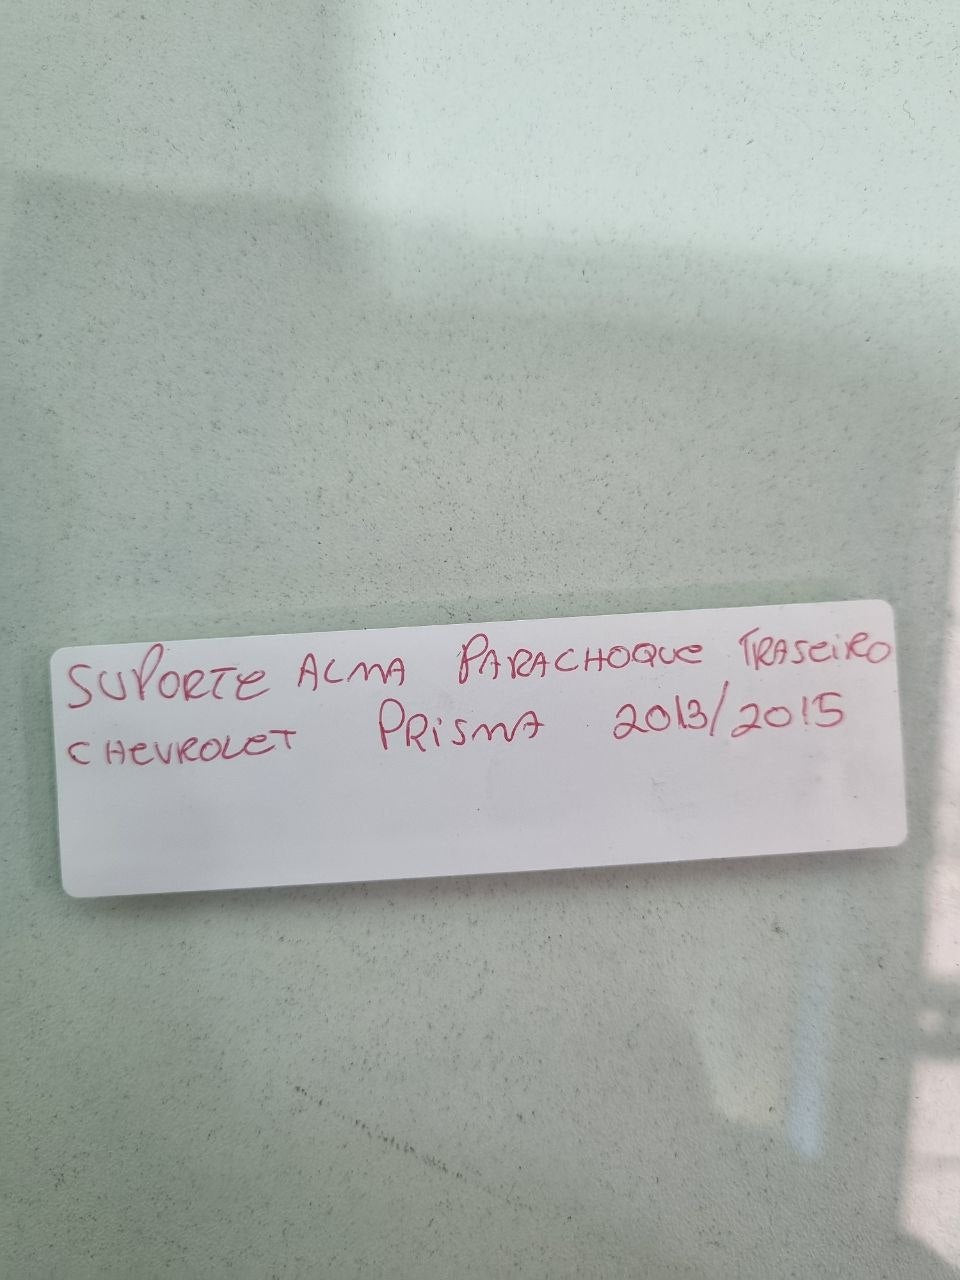 SUPORTE ALMA PARACHOQUE TRASEIRO
CHEVROLET PRISMA 2013/2015